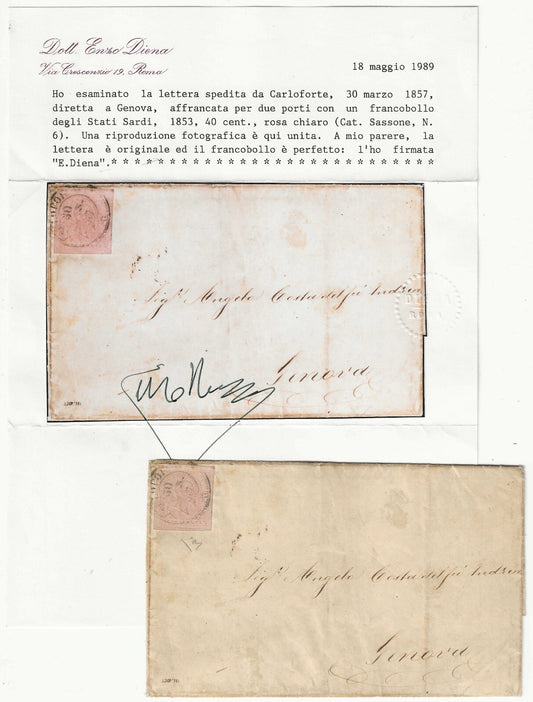 Dott. Enzo Diena
Via Crescenzio 19, Roma
18 maggio 1989
Ho esaminato la lettera spedita da Carloforte, 30 marzo 1857,
diretta a Genova, affrancata per due porti con un francobollo
degli Stati Sardi, 1853, 40 cent., rosa chiaro (Cat. Sassone, N.
6). Una riproduzione fotografica è qui unita. A mio parere, la
lettera è originale ed il francobollo è perfetto: l'ho firmata
"E.Diena".* * * * * * * * * * * * * * * * * * * * * * * * * * * *
Sig.r Angelo Costa del fu Andrea
DIENA
ROMA
Genova
Sig.r Angelo Costa del fu Andrea
Genova